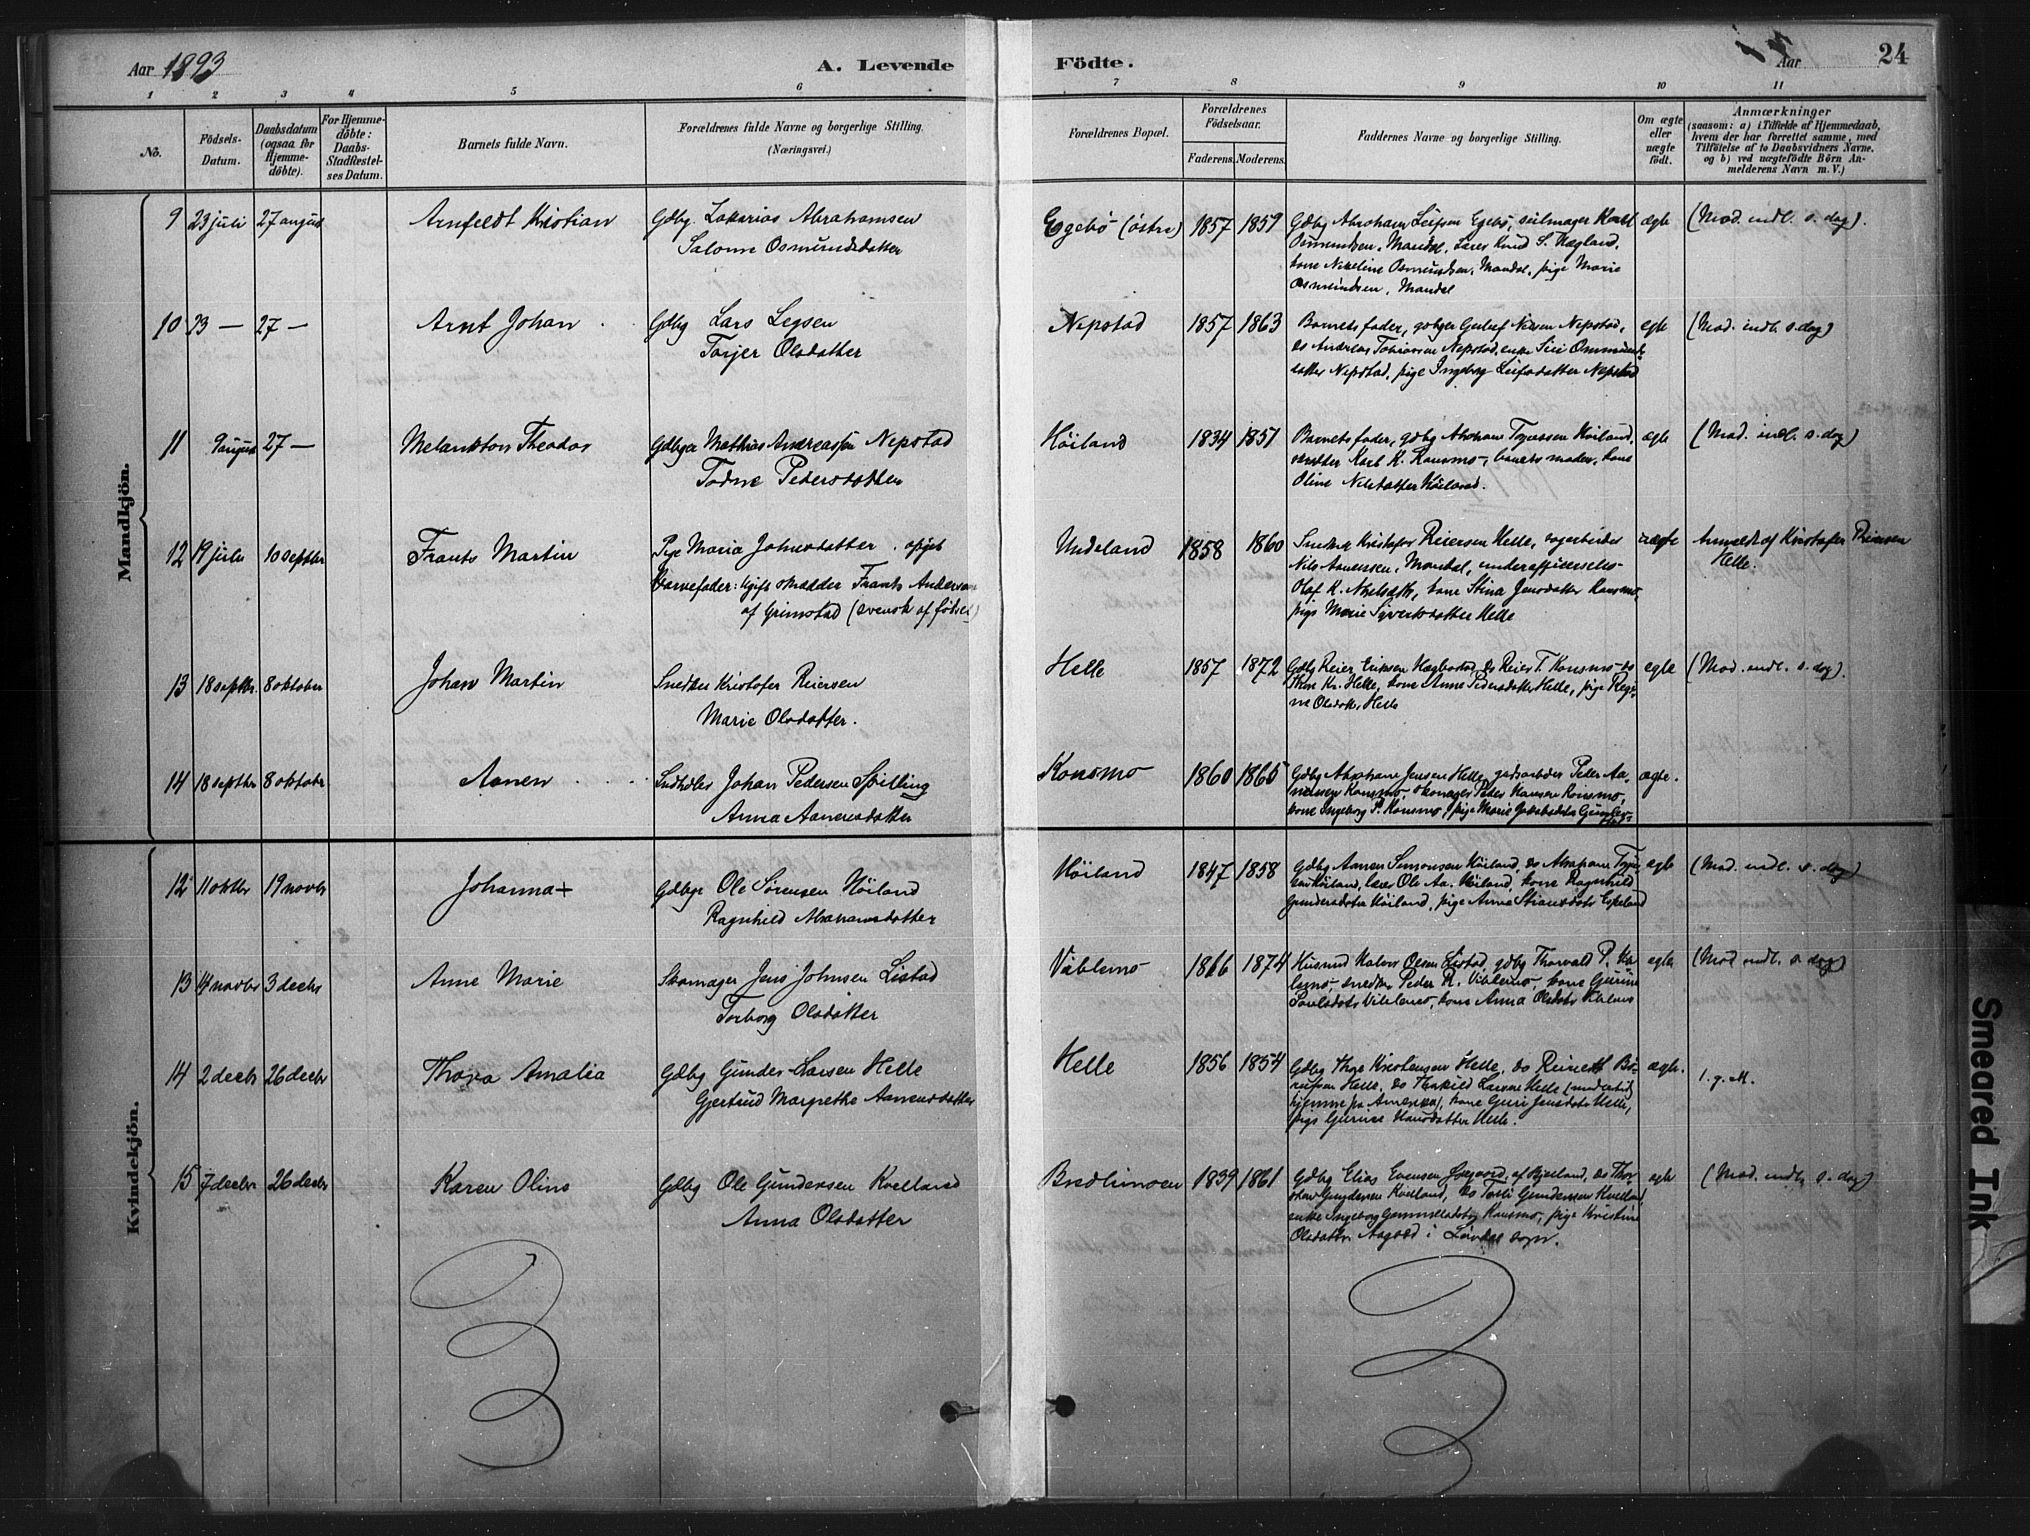 Aar 1893
A. Levende Födte.
Aar
24
1 2 3 4 5 6 7 8 9 10 11
No.
Födsels-Datum.
Daabsdatum (ogsaa for Hjemmedöbte).
For Hjemmedöbte: Daabs-Stadfæstelses Datum.
Barnets fulde Navn.
Forældrenes fulde Navne og borgerlige Stilling.
(Næringsvei.)
Forældrenes Bopæl.
Forældrenes Födselsaar.
Faderens. Moderens.
Faddernes Navne og borgerlige Stilling.
Om ægte eller uægte födt.
Anmærkninger
(saasom: a) i Tilfælde af Hjemmedaab,
hvem der har forrettet samme, med
Tilföielse af to Daabsvidners Navne,
og b) ved uægtefödte Börn Anmelderens Navn m. V.)
Mandkjön.
9 23 juli 27 august Arnfeldt Kristian Gdbg. Zakarias Abrahamsen
Salome Osmundsdatter
Egebö (östre) 1857 1859 Gdbg Abraham Leifsen Egebö, seilmager
Osmundsen, Mandal, Lærer Knud S. Hægland,
kone Nikeline Osmundsen, Mandal, pige Marie
Osmundsen, Mandal
ægte (Mod. indl. s. dag).
10 23 — 27 — Arnt Johan Gdbg Lars
Torjer Olsdatter
Nepstad 1857 1863 Barnets fader, Nepstad,
do Andreas Tobiassen Nepstad, enke Siri
Nepstad, pige Ingeborg Leifsdatter Nepstad
egte (Mod. indl. s. dag)
11 9 august 27 — Melankton Theodor Gdbger Mathias Andreassen Nepstad
Tödne Pedersdatter
Höiland 1834 1851 Barnets fader, gdbg Abraham
Karl K. Konsmo, barnets moder, kone
Oline Nilsdatter Höiland.
ægte (Mod. indl. s. dag)
12 19 juli 10 septbr Frants Martin Pige Maria Johnsdatter
Barnefader: Frants Anderson
af Grimstad (svensk af födsel)
Undeland 1858 1860 Snedker Kristofer Reiersen Helle,
Nils Mandal,
Olaf K. kone Stina Jensdatter Konsmo,
pige Marie Syvertsdatter Helle
uægte Anmeldt af Kristofer Reiersen
Helle.
13 18 septbr. 8 oktober Johan Martin Snedker Kristofer Reiersen
Marie Olsdatter.
Helle 1857 1872 Gdbg Reier Eriksen Hægbostad, do Reier T. Konsmo, do
Thore Kr. Helle, kone Anne Pedersdatter Helle, pige Regine
Olsdatter Helle
egte (Mod. indl. s. dag).
14 18 septbr 8 oktobr Aanen Johan Pedersen Spilling
Anna Aanensdatter
Konsmo 1860 1865 Gdbg Abraham Jensen Helle, gaardarbeider Peder Aanensen
Konsmo, skomager Peder Hansen Konsmo,
kone Ingeborg P. Konsmo, pige Marie
ægte.
Kvindekjön.
12 11 oktbr 19 novbr Johanna + Gdbgr Ole Sørensen Höiland
Ragnhild Abrahamsdatter
Höiland 1847 1858 Gdbg Aanen Simonsen Höiland, do Abraham
Höiland, lærer Ole Aa. Höiland, kone Ragnhild
Gundersdatter Höiland, pige Anna
egte (Mod. indl. s. dag)
13 14 novbr 3 decbr Anne Marie Skomager Jens Johnsen Listad
Torborg Olsdatter
Viblemo 1866 1874 Husmd Halvor Olsen Listad, gdbg Thorvald P.
snedker Peder R. Viblemo, kone Gurine
Viblemo, kone Anna Olsdatr
egte (Mod indl. s. dag)
14 2 decbr 26 decbr Thora Amalia Gdbg Gunder Larsen Helle
Gjertrud Margrethe Aanensdatter
Helle 1856 1854 Gdbg Thore Kristensen Helle, do
Helle, do Larsen Helle (midlertidig
hjemme fra Amerika), kone Guri Jensdatr Helle,
pige Gurine Hansdatter Helle.
ægte. I. g. M.
15 7 decbr 26 decbr Karen Oline Gdbg Ole Gundersen Kvelland
Anna Olsdatter
Bredlimoen 1839 1861 Gdbg Elias Evensen af Bjelland, do
Gundersen Kvelland, do Gundersen Kvelland,
enke Ingeborg Konsmo, pige Kristine
Olsdatter i sogn.
egte (Mod. indl. s. dag)
Smeared Ink